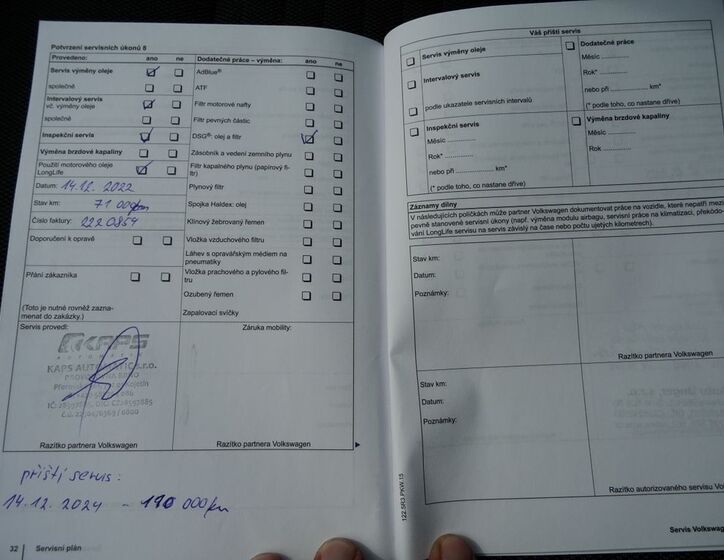 Potvrzení servisních úkonů 8
Provedeno: ano ne
Servis výměny oleje
společně
Intervalový servis
vč. výměny oleje
společně
Inspekční servis
Výměna brzdové kapaliny
Použití motorového oleje
LongLife
Datum: 14.12. 2022
Stav km: 71 000km
Číslo faktury: 2220854
Doporučení k opravě
Přání zákazníka
(Toto je nutné rovněž zazna-
menat do zakázky.)
Dodatečné práce – výměna: ano ne
AdBlue®
ATF
Filtr motorové nafty
Filtr pevných částic
DSG®: olej a filtr
Zásobník a vedení zemního plynu
Filtr kapalného plynu (papírový fi-
ltr)
Plynový filtr
Spojka Haldex: olej
Klínový žebrovaný řemen
Vložka vzduchového filtru
Láhev s opravářským médiem na
pneumatiky
Vložka prachového a pylového fil-
tru
Ozubený řemen
Zapalovací svíčky
Servis provedl:
KAPS
KAPS AUTOMATIC s.r.o.
Razítko partnera Volkswagen
Záruka mobility:
Razítko partnera Volkswagen
příští servis:
14.12. 2024 - 110 000km
32 Servisní plán
Váš příští servis
Servis výměny oleje
Intervalový servis
podle ukazatele servisních intervalů
Inspekční servis
Měsíc
Rok*
nebo při km*
(* podle toho, co nastane dříve)
Dodatečné práce
Měsíc
Rok*
nebo při km*
(* podle toho, co nastane dříve)
Výměna brzdové kapaliny
Měsíc
Rok
Záznamy dílny
V následujících políčkách může partner Volkswagen dokumentovat práce na vozidle, které nepatří mezi
pevně stanovené servisní úkony (např. výměna modulu airbagu, servisní práce na klimatizaci, překódo-
vání LongLife servisu na servis závislý na čase nebo počtu ujetých kilometrech).
Stav km:
Datum:
Poznámky:
Razítko partnera Volkswagen
Stav km:
Datum:
Poznámky:
Razítko autorizovaného servisu Vol
122.5R3.PKW.15
Servis Volkswage